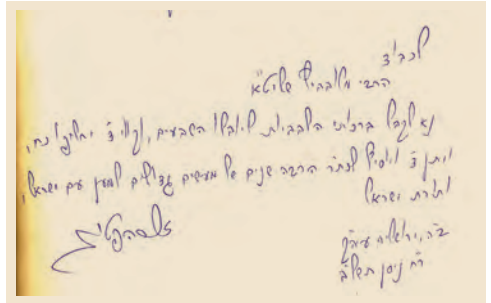 לכבוד
הרבי מלובביץ שליט"א
נא לקבל ברכותי הלבביות ליובל השבעים, וקוי ה' יחליפו כח,
ויתן ה' ויוסיף לכת"ר הרבה שנים של מעשים גדולים למען עם ישראל,
ותורת ישראל
ב"ה, ירושלים עיה"ק
ר"ח ניסן תשל"ב